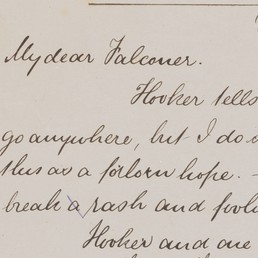 My dear Falconer.
Hooker tells
go anywhere, but I do
this as a forlorn hope. —
break a rash and fool
Hooker and one